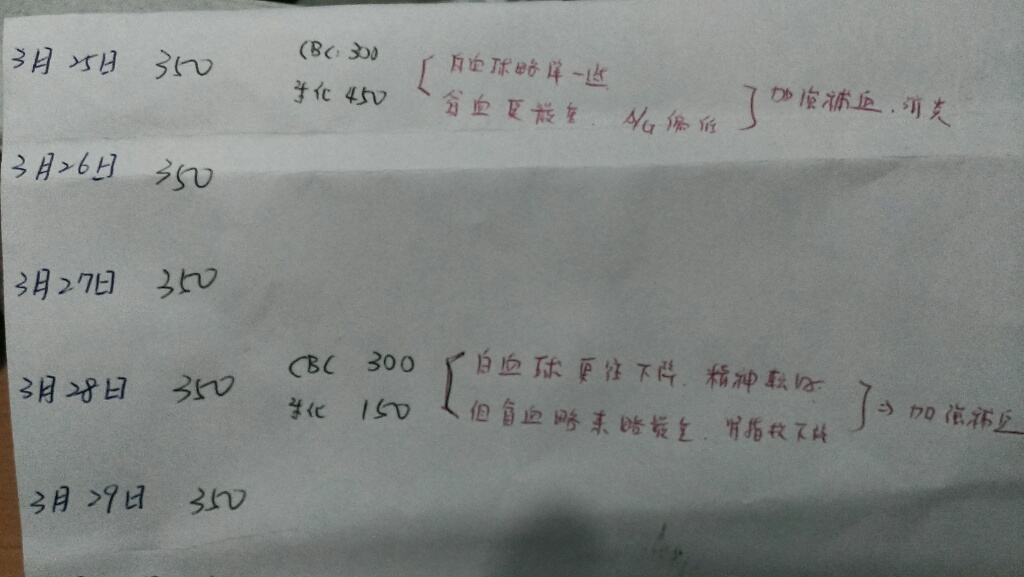 3月25日 350 CBC 300 白血球略降一些
生化 450 貧血更嚴重. A/G偏低 加強補血.消炎
3月26日 350
3月27日 350
3月28日 350 CBC 300 白血球更往下降. 精神較好
生化 150 但貧血略來略嚴重. 腎指数下降 ⇒ 加強補血
3月29日 350